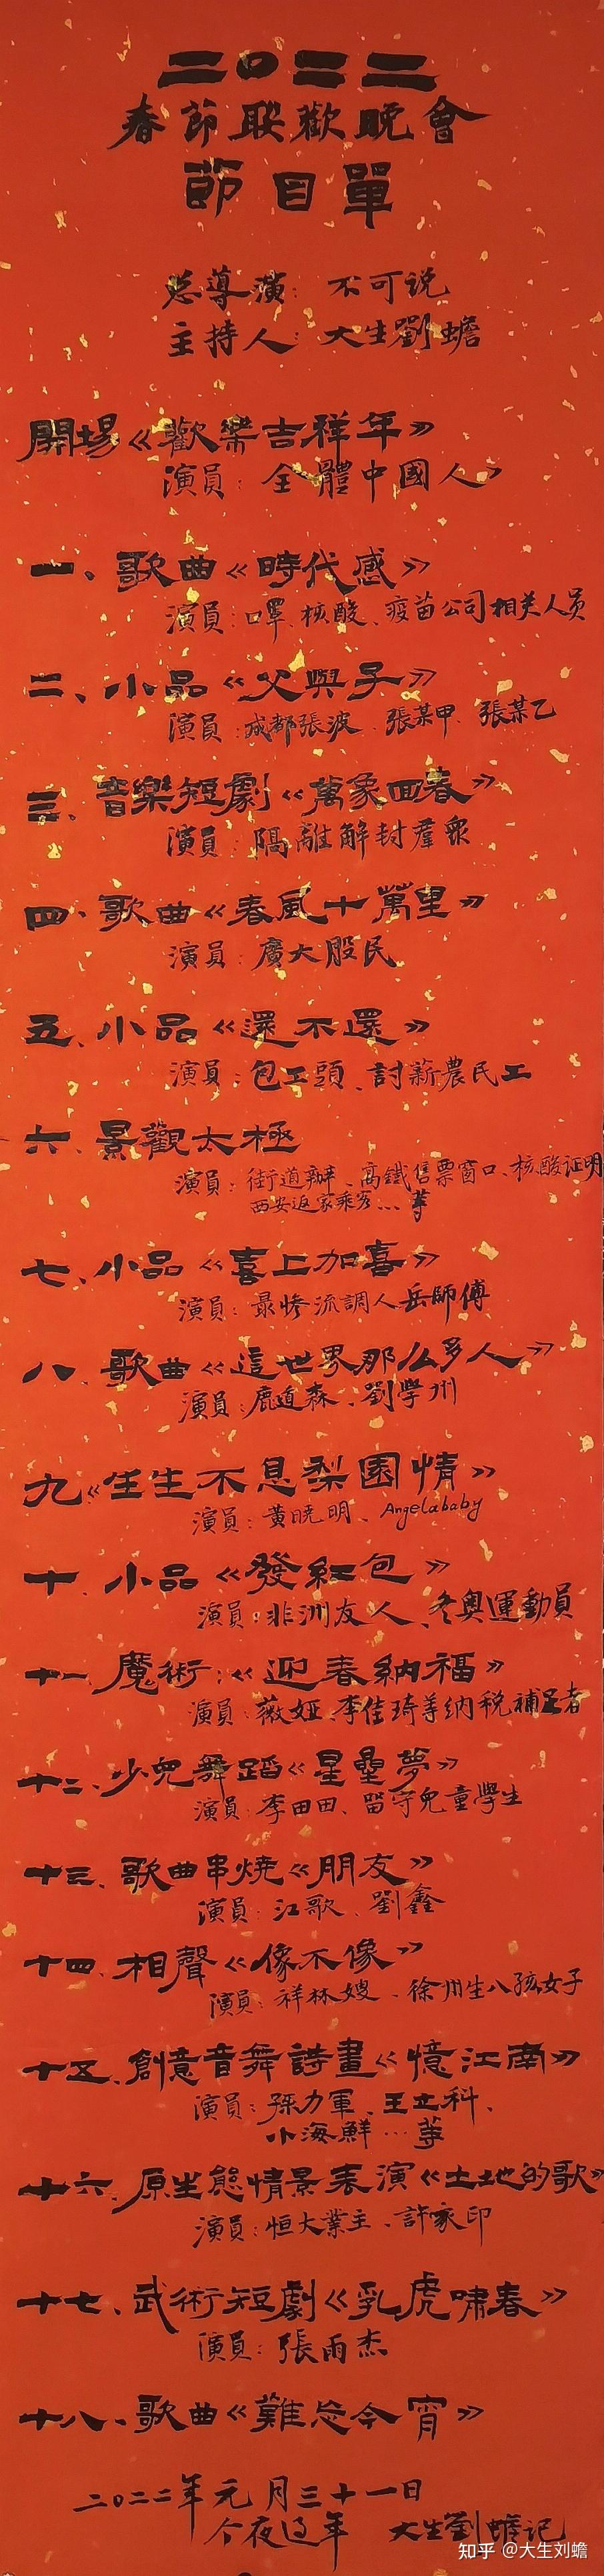 二〇二二
春節聯歡晚會
節目單
总導演：不可说
主持人：大生劉蟾
開場《歡樂吉祥年》
演員：全體中國人
一、歌曲《時代感》
演員：口罩、核酸、疫苗公司相关人员
二、小品《父與子》
演員：成都張波、張某甲、張某乙
三、音樂短劇《萬象回春》
演員：隔離解封羣衆
四、歌曲《春風十萬里》
演員：廣大股民
五、小品《還不還》
演員：包工頭、討薪農民工
六、景觀太極
演員：街道辦、高鐵售票窗口、核酸证明
西安返家乘客…等
七、小品《喜上加喜》
演員：最惨流調人岳師傅
八、歌曲《這世界那么多人》
演員：鹿道森、劉學州
九《生生不息梨園情》
演員：黃曉明、Angelababy
十、小品《發紅包》
演員：非洲友人、冬奧運動員
十一、魔術：《迎春納福》
演員：薇娅、李佳琦等纳税補足者
十二、少兒舞蹈《星星夢》
演員：李田田、留守兒童學生
十三、歌曲串燒《朋友》
演員：江歌、劉鑫
十四、相聲《像不像》
演員：祥林嫂、徐州生八孩女子
十五、創意音舞詩畫《憶江南》
演員：孫力軍、王立科、
小海鮮…等
十六、原生態情景表演《土地的歌》
演員：恒大業主、許家印
十七、武術短劇《乳虎啸春》
演員：張雨杰
十八、歌曲《難忘今宵》
二〇二二年元月三十一日
今夜过年 大生劉蟾记
知乎 @大生刘蟾